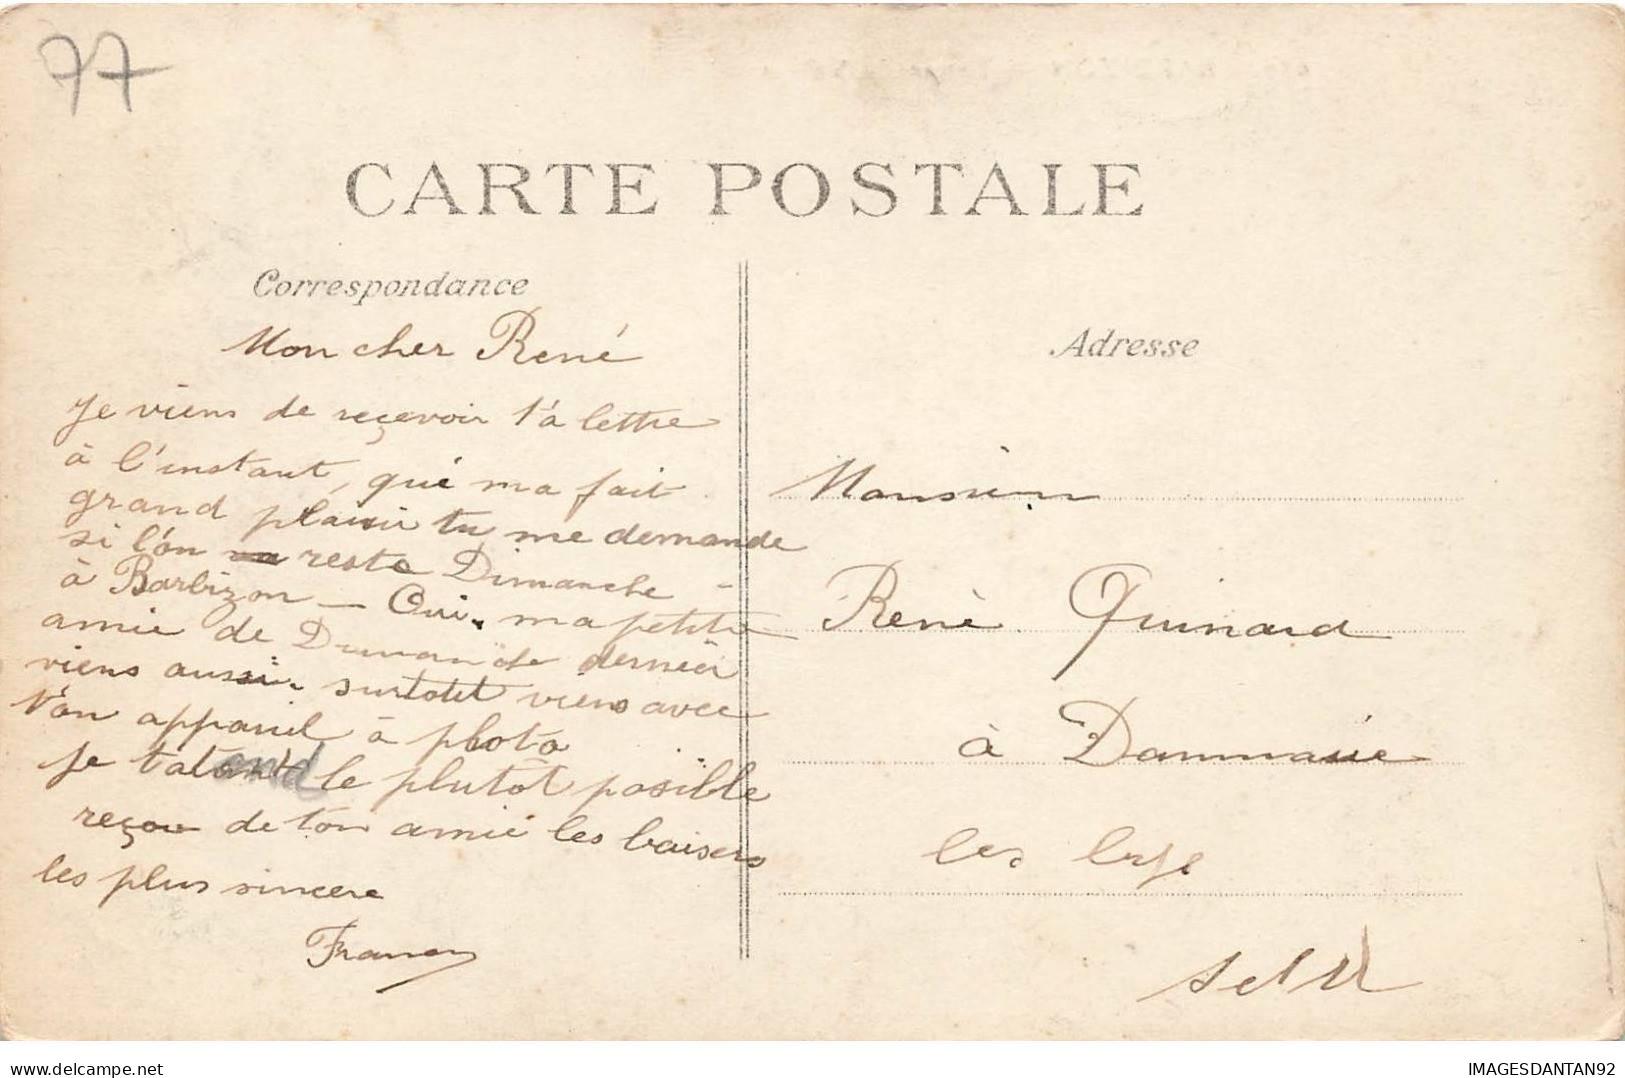 77
CARTE POSTALE
Correspondance
Mon cher René
Je viens de reçevoir t'a lettre
à l'instant, qui ma fait
grand plaisir tu me demande
si l'on reste Dimanche
à Barbizon — Oui. ma petite
amie de Dimanche dernier
viens aussi. surtout viens avec
t'on appareil à photo
je t'attend le plutôt posible
reçou de ton amie les baisers
les plus sincere
Adresse
Monsieur
René Guinard
à Dammarie
les Lys
S et M
IMAGESDANTAN92